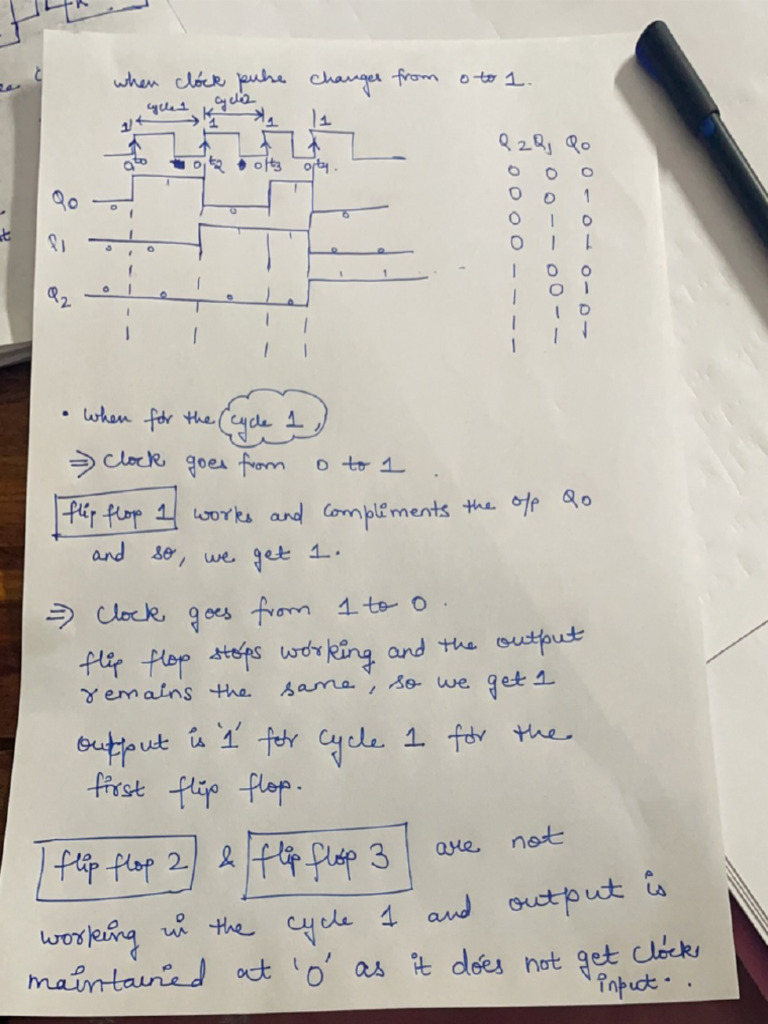 when clock pulse changes from 0 to 1.
cycle 1 cycle 2
1 1 1 1
0 t0 0 t2 0 t3 0 t4.
Q0 0 1 0 1 0
Q1 0 0 1 1 0 0
Q2 0 0 0 0 1 1
Q2 Q1 Q0
0 0 0
0 0 1
0 1 0
0 1 1
1 0 0
1 0 1
1 1 0
1 1 1
• When for the cycle 1,
⇒ Clock goes from 0 to 1.
flip flop 1 works and compliments the o/p Q0
and so, we get 1.
⇒ Clock goes from 1 to 0.
flip flop stops working and the output
remains the same, so we get 1
output is '1' for cycle 1 for the
first flip flop.
flip flop 2 & flip flop 3 are not
working in the cycle 1 and output is
maintained at '0' as it does not get clock
input..